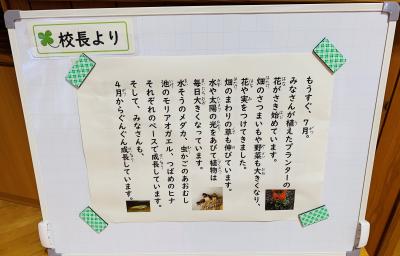 校長より
もうすぐ、7月。
みなさんが植えたプランターの
花がさき始めています。
畑のさつまいもや野菜も大きくなり、
花や実をつけてきました。
畑のまわりの草も伸びています。
水や太陽の光をあびて植物は
毎日大きくなっています。
水そうのメダカ、虫かごのあおむし
池のモリアオガエル、つばめのヒナ
それぞれのペースで成長しています。
そして、みなさんも、
4月からぐんぐん成長しています。